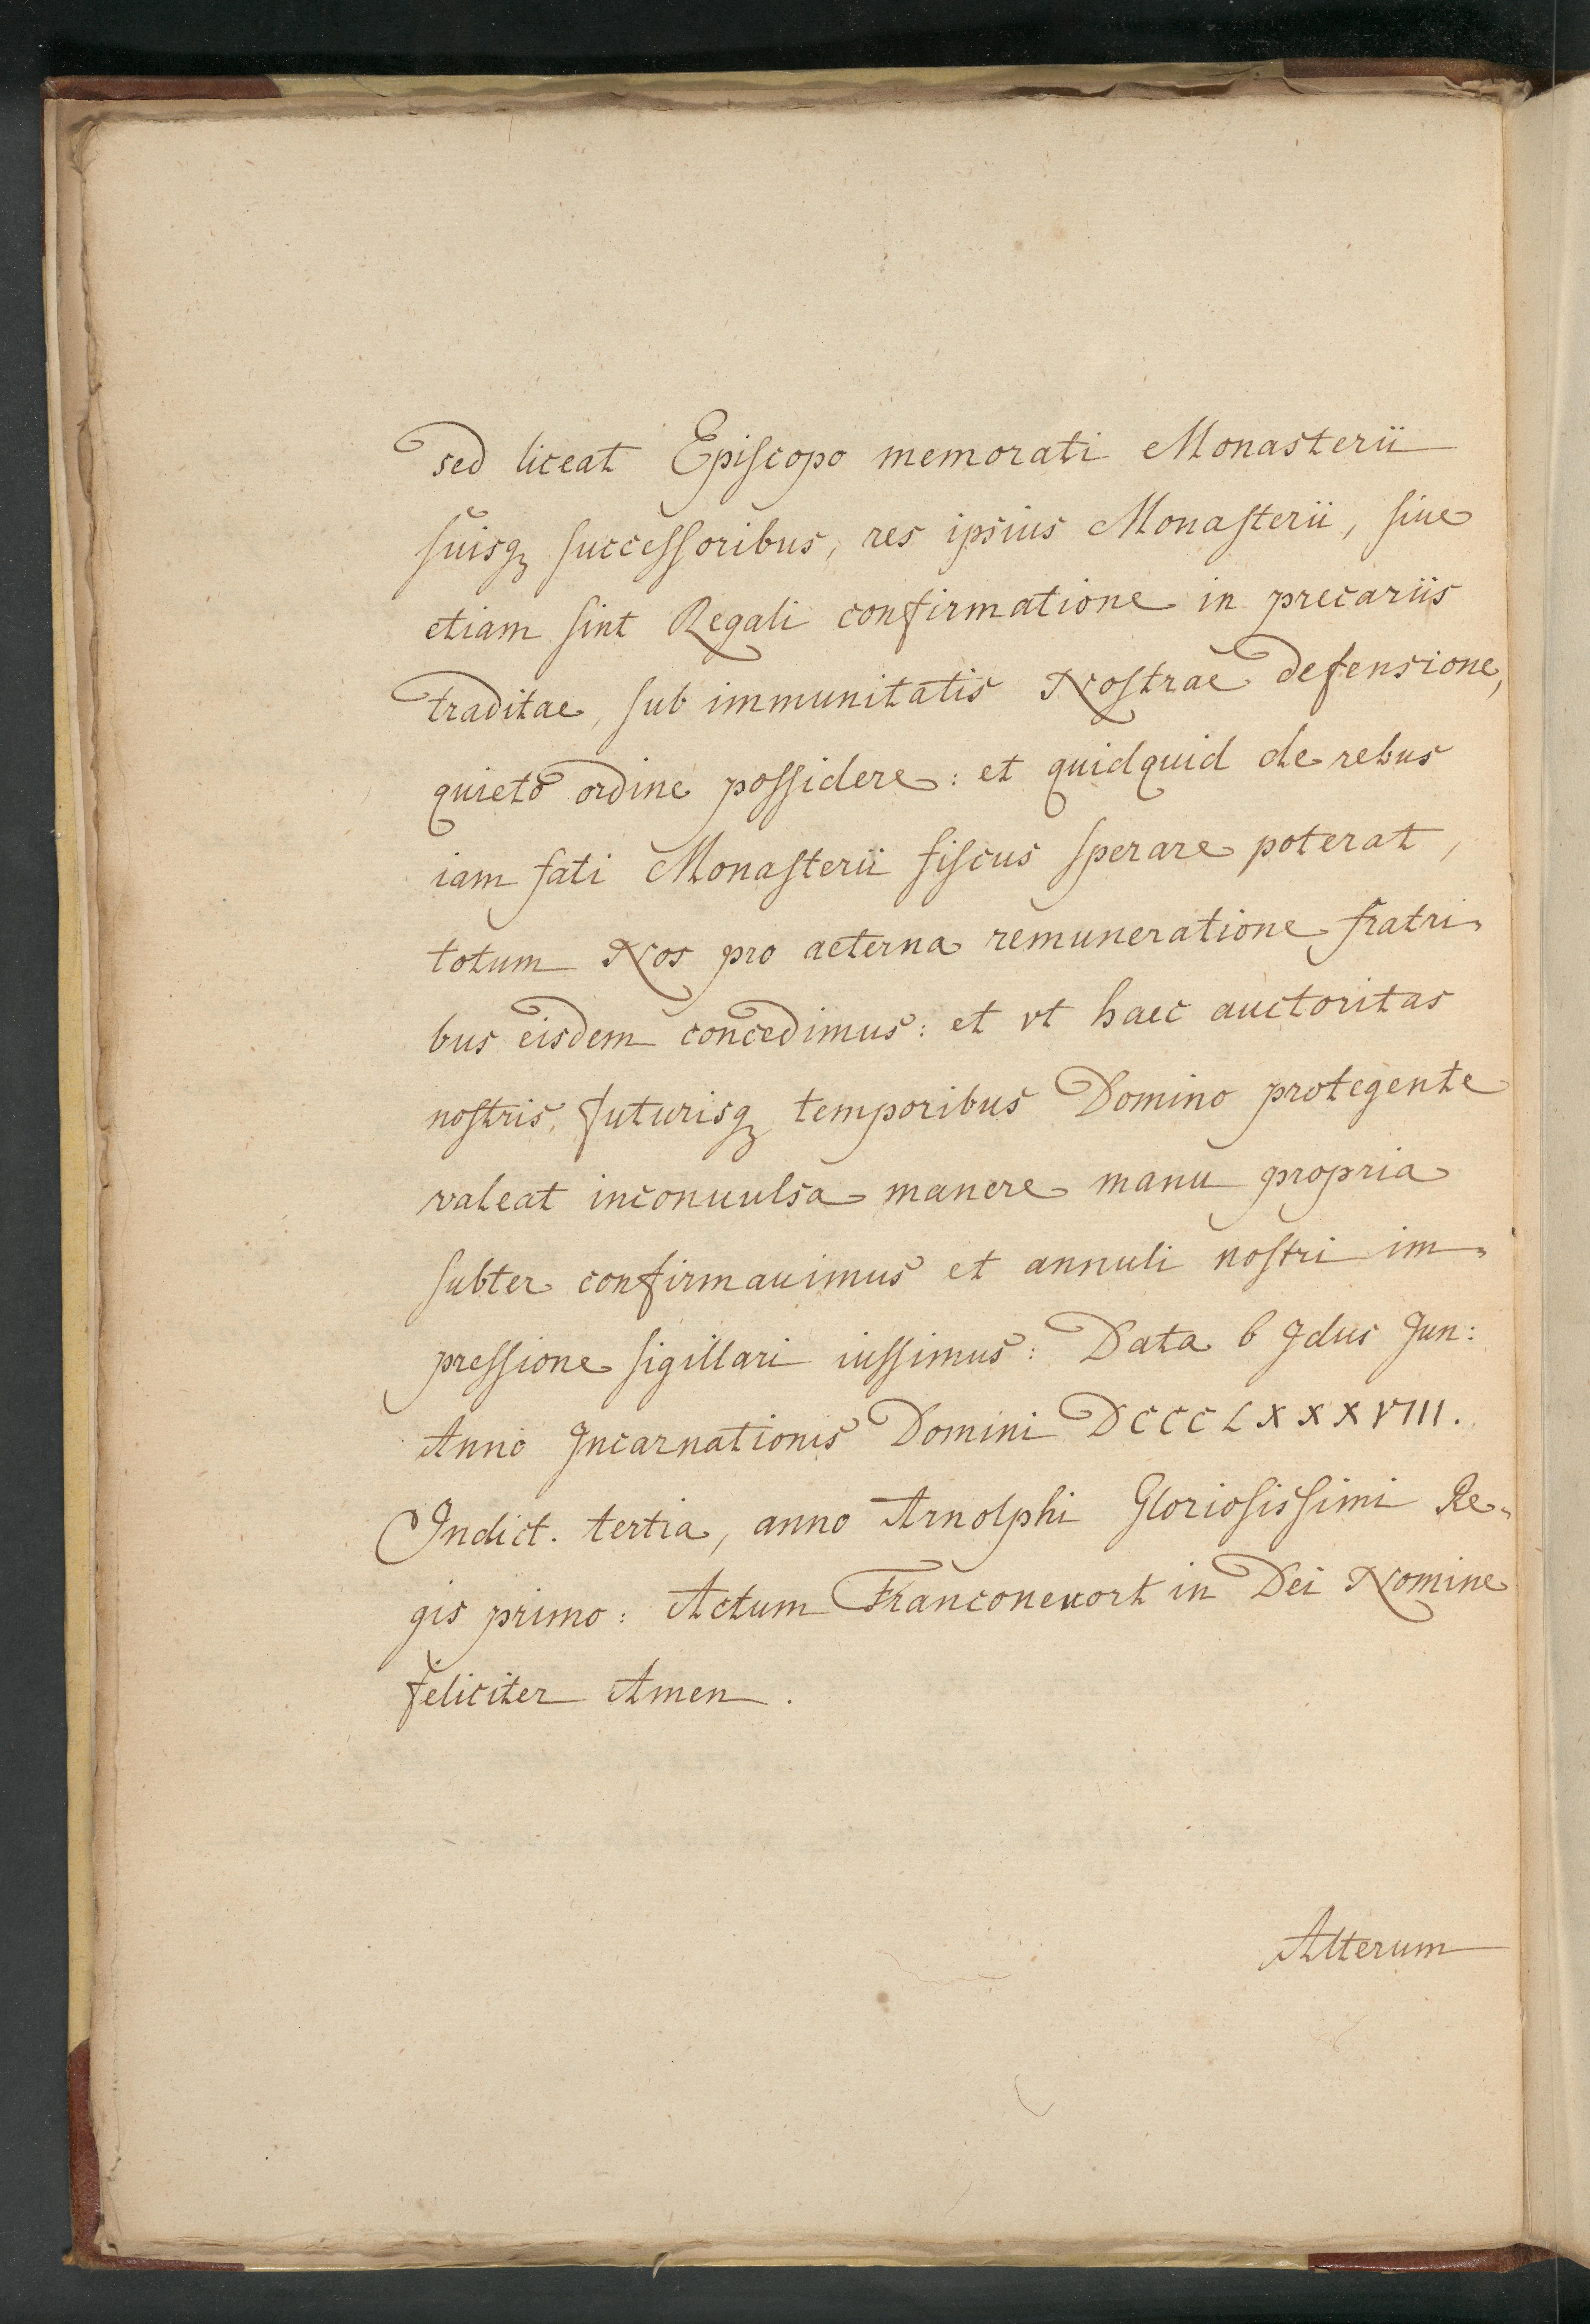 sed liceat Episcopo memorati Monasterii
suisq̃ successoribus, res ipsius Monasterii, siue
etiam sint Regali confirmatione in precariis
traditae, sub immunitatis Nostrae defensione,
quieto ordine possidere: et quidquid de rebus
iam fati Monasterii fiscus sperare poterat,
totum Nos pro aeterna remuneratione fratri„
bus eisdem concedimus: et vt haec auctoritas
nostris, futurisq̃ temporibus Domino protegente
valeat inconuulsa manere manu propria
subter confirmauimus et annuli nostri im„
pressione sigillari iussimus: Data 6 Idus Jun:
Anno Incarnationis Domini DCCCLXXXVIII.
Indict. tertia, anno Arnolphi Gloriosissimi Re„
gis primo: Actum Franconeuort in Dei Nomine
feliciter Amen.
Alterum